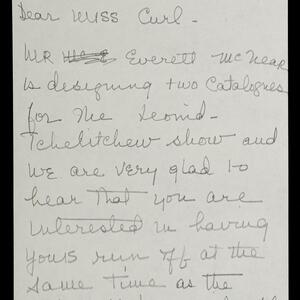 Dear Miss Curl -
Mr Everett McNear
is designing two Catalogues
for the Leonid-
Tchelitchew show and
we are very glad to
hear that you are
interested in having
yours run off at the
same time as the